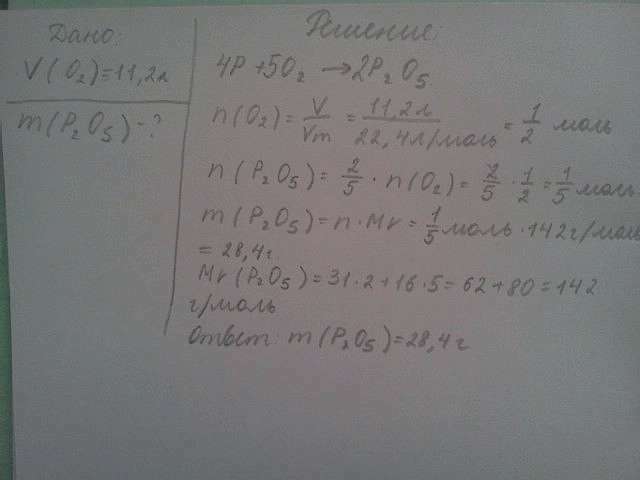 Дано:
V(O₂)=11,2л
m(P₂O₅)-?
Решение:
4P+5O₂ →2P₂O₅
n(O₂)= V/Vm = 11,2л/22,4л/моль = 1/2 моль
n(P₂O₅)= 2/5 · n(O₂)= 2/5 · 1/2 = 1/5 моль
m(P₂O₅)=n·Mr= 1/5 моль·142г/моль
= 28,4г.
Mr(P₂O₅)=31·2+16·5=62+80=142
г/моль
Ответ: m(P₂O₅)=28,4г